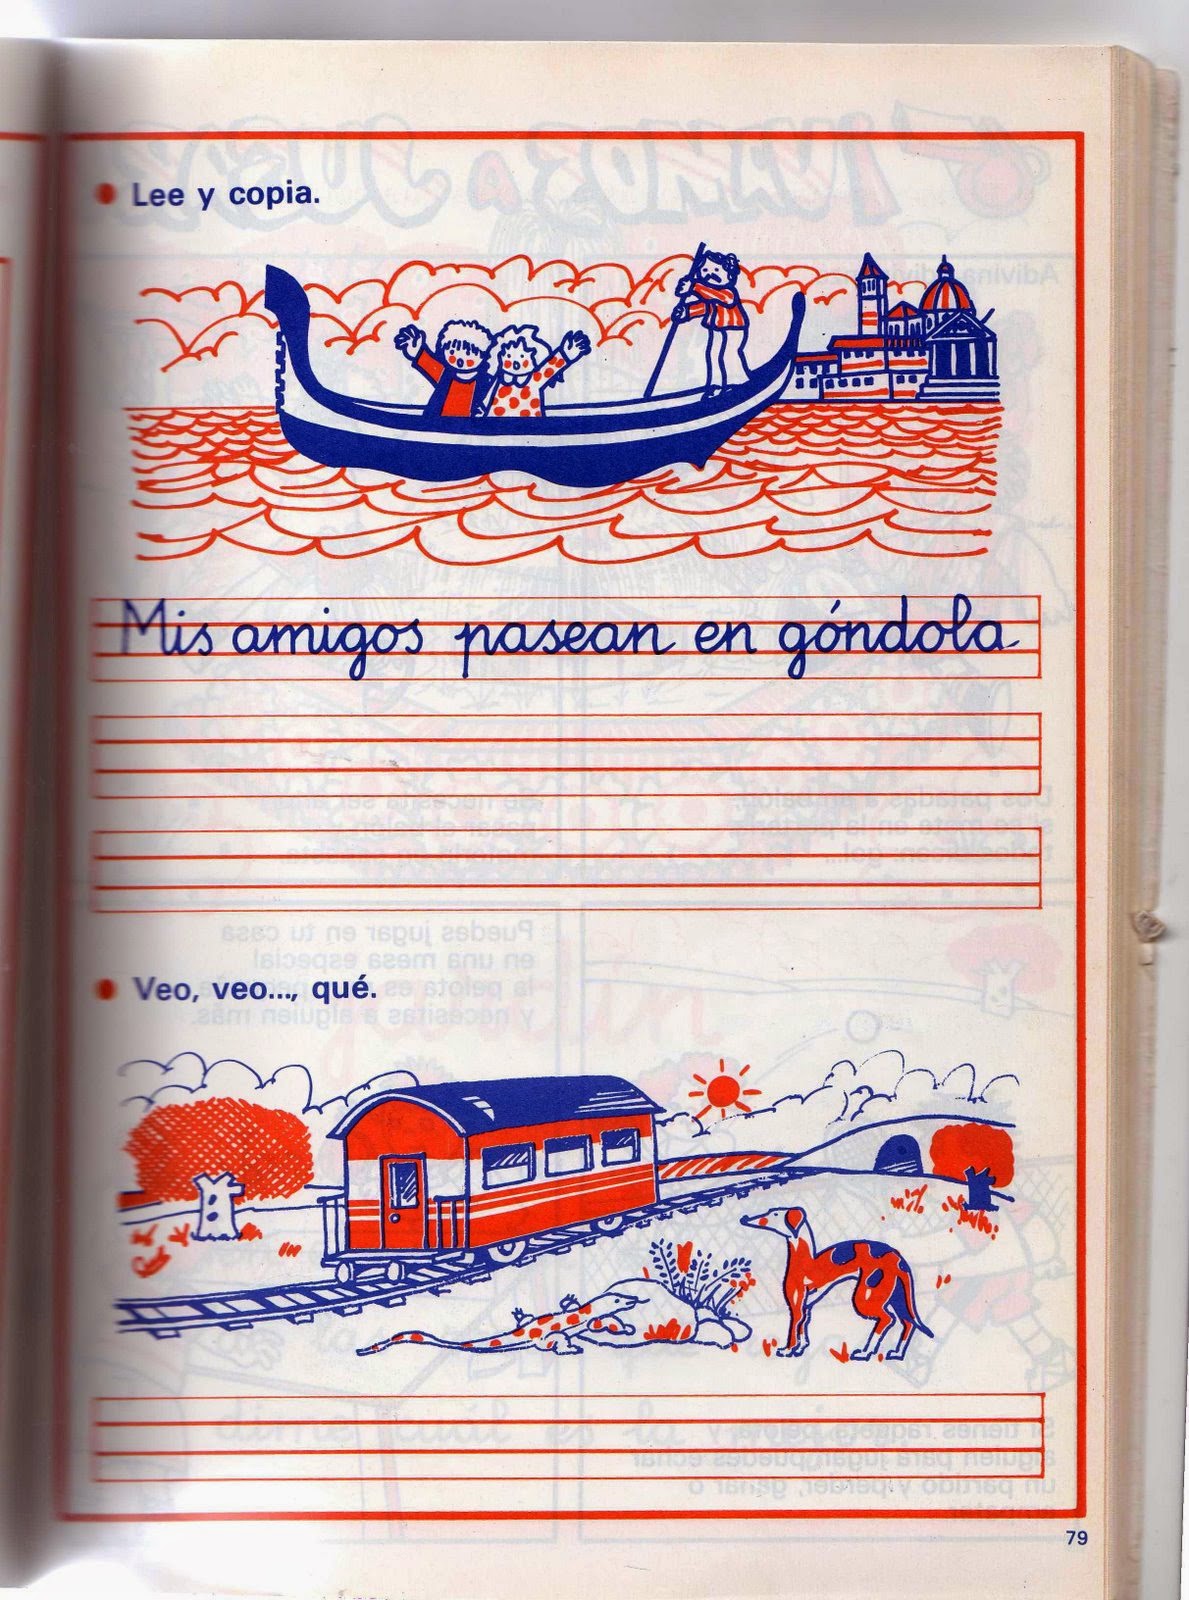 Lee y copia.
Mis amigos pasean en góndola
Veo, veo..., qué.
79